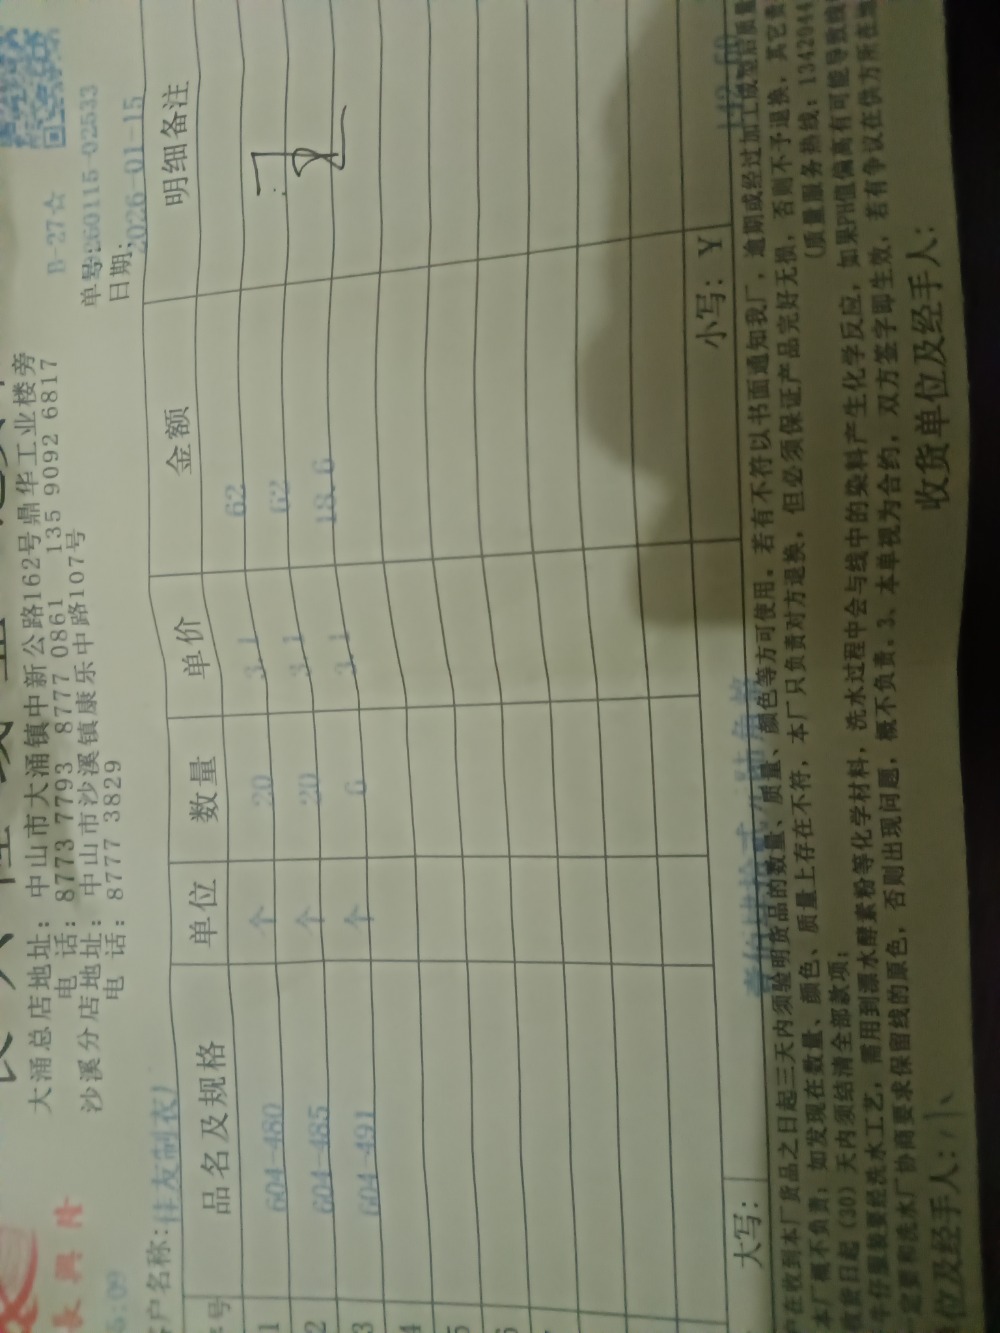 長興隆
大涌总店地址：中山市大涌镇中新公路162号鼎华工业楼旁
电 话：8773 7793 8777 0861 135 9092 6817
沙溪分店地址：中山市沙溪镇康乐中路107号
电 话：8777 3829
B-27☆
单号:260115-02533
日期:2026-01-15
5:09
户名称: 佳友制衣)
号 品名及规格 单位 数量 单价 金额 明细备注
1 604-480 个 20 3.1 62
2 604-485 个 20 3.1 62
3 604-491 个 6 3.1 18.6
4
5
6
大写: 小写: ¥ 142.60
在收到本厂货品之日起三天内须验明货品的数量、质量、颜色等方可使用。若有不符以书面通知我厂，逾期或经过加工成型后质量
本厂概不负责；如发现在数量、颜色、质量上存在不符，本厂只负责对方退换，但必须保证产品完好无损，否则不予退换，其它责
收费日起（30）天内须结清全部款项； (质量服务热线：1342044
牛仔服装要经洗水工艺，需用到漂水酵素粉等化学材料，洗水过程中会与线中的染料产生化学反应，如果PH值偏高有可能导致线
一定要和洗水厂协商要求保留线的原色，否则出现问题，概不负责。3、本单视为合约，双方签字即生效，若有争议在供方所在地
位及经手人： 收货单位及经手人：